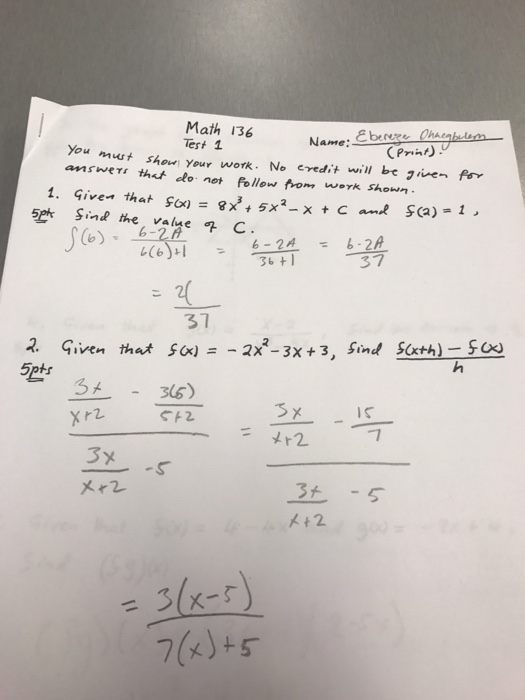 Math 136
Test 1
Name: Ebereze
(Print).
You must show your work. No credit will be given for
answers that do not follow from work shown.
1. Given that f(x) = 8x³ + 5x² - x + C and f(2) = 1,
5pts find the value of C.
f(6) = 6-2A / 6(6)+1 = 6-2A / 36+1 = 6-2A / 37
= 2( / 37
2. Given that f(x) = -2x² - 3x + 3, find f(x+h) - f(x) / h
5pts
3x / x+2 - 3(5) / 5+2 = 3x / x+2 - 15 / 7
3x / x+2 - 5 3x / x+2 - 5
= 3(x-5) / 7(x)+5